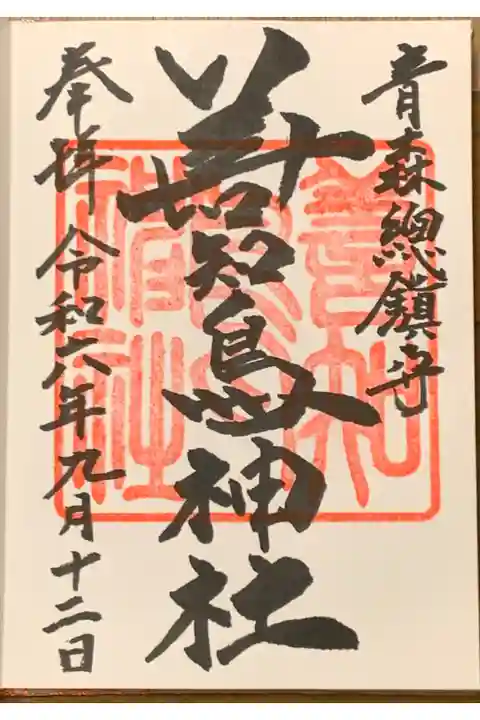 青森總鎮守
善知鳥神社
奉拝 令和六年九月十二日